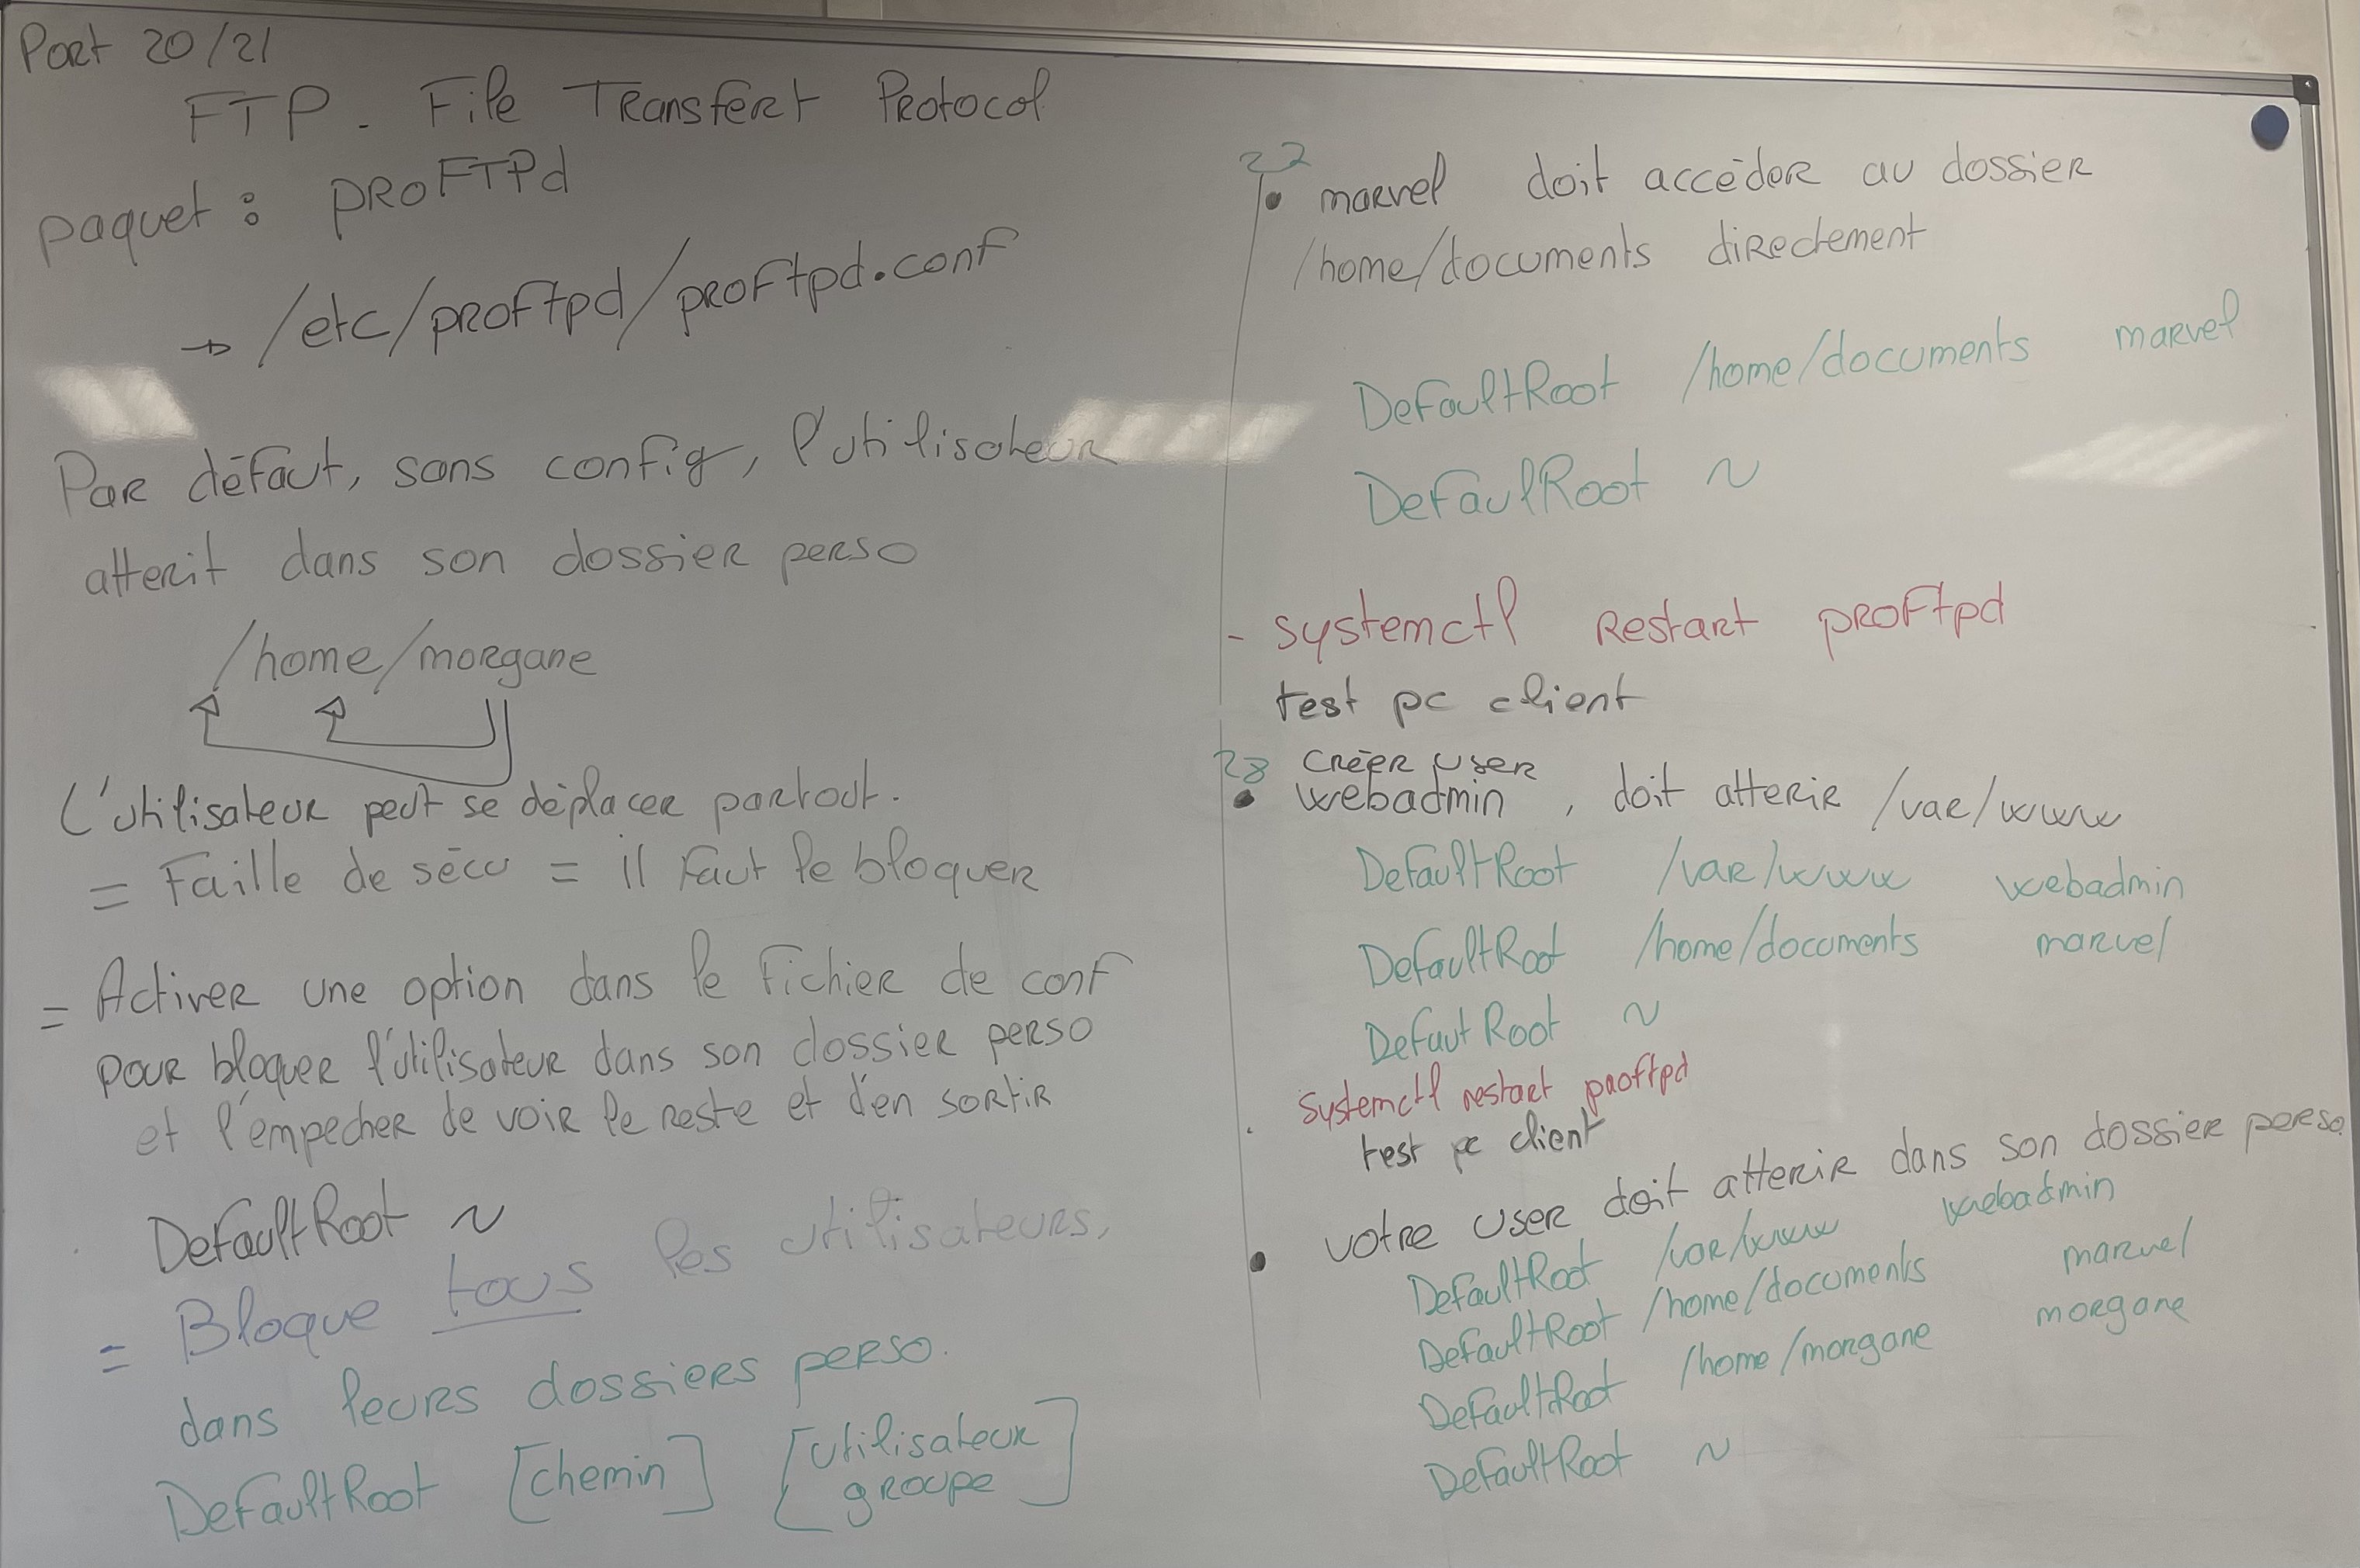 Port 20/21
FTP - File Transfert Protocol
paquet : proFTPd
→ /etc/proftpd/proftpd.conf
Par défaut, sans config, l'utilisateur
atterit dans son dossier perso
/home/morgane
L'utilisateur peut se déplacer partout.
= Faille de sécu = il faut le bloquer
= Activer une option dans le fichier de conf
pour bloquer l'utilisateur dans son dossier perso
et l'empecher de voir le reste et d'en sortir
DefaultRoot ~
= Bloque tous les utilisateurs,
dans leurs dossiers perso.
DefaultRoot [chemin] [utilisateur
groupe]
• marvel doit accéder au dossier
/home/documents directement
DefaultRoot /home/documents marvel
DefaulRoot ~
- systemctl restart proftpd
test pc client
28 créer user
• webadmin, doit atterir /var/www
DefaultRoot /var/www webadmin
DefaultRoot /home/documents marvel
DefautRoot ~
systemctl restart proftpd
test pc client
• votre user doit atterir dans son dossier perso.
DefaultRoot /var/www webadmin
DefaultRoot /home/documents marvel
DefaultRoot /home/morgane morgane
DefaultRoot ~